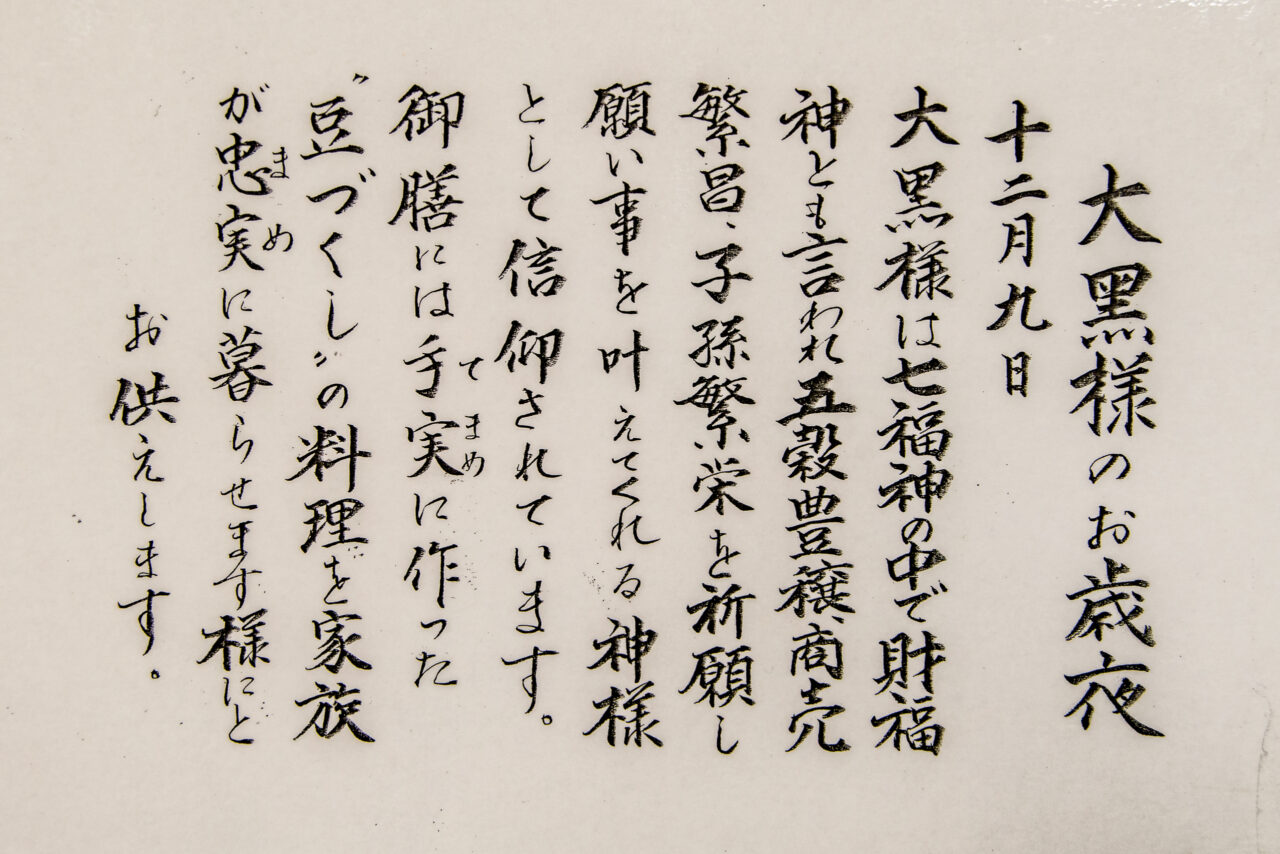 大黒様のお歳夜
十二月九日
大黒様は七福神の中で財福
神とも言われ五穀豊穣、商売
繁昌、子孫繁栄を祈願し
願い事を叶えてくれる神様
として信仰されています。
御膳には手実に作った
てまめ
〝豆づくし〟の料理を家族
が忠実に暮らせます様にと
まめ
お供えします。